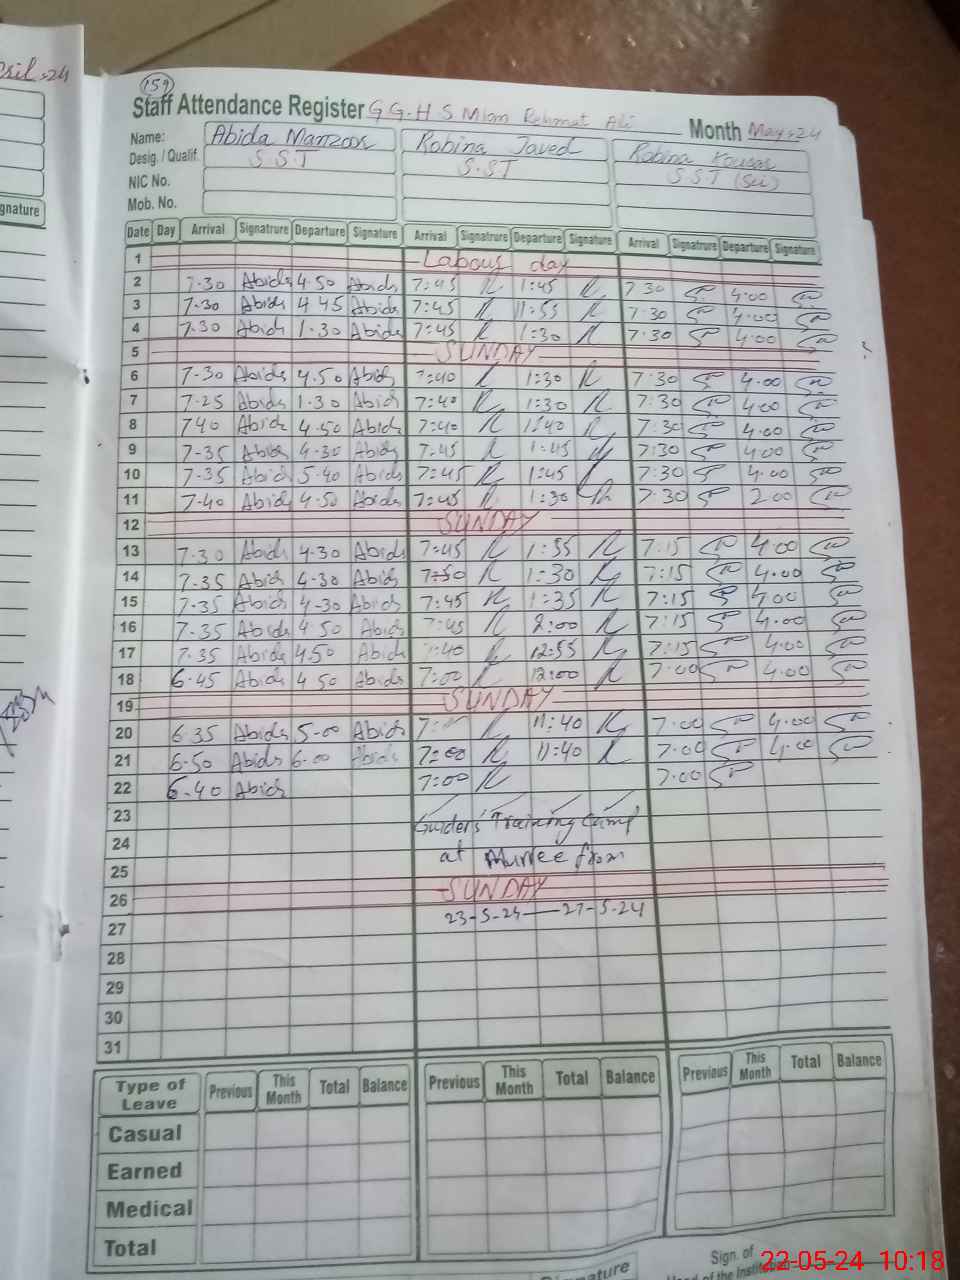 ril-24
159
Staff Attendance Register G.G.H.S Mian Rehmat Ali Month May-24
Name: Abida Manzoor Robina Javed Robina Kousar
Desig. / Qualif. S.S.T S.S.T S.S.T (Sci)
NIC No.
Mob. No.
gnature
Date Day Arrival Signatrure Departure Signature Arrival Signatrure Departure Signature Arrival Signatrure Departure Signature
1 Labour day
2 7-30 Abida 4.50 Abida 7:45 R 1:45 R 7:30 4:00
3 7-30 Abida 4 45 Abida 7:45 R 11:55 R 7:30 4:00
4 7.30 Abida 1.30 Abida 7:45 R 1:30 R 7:30 4:00
5 SUNDAY
6 7-30 Abida 4.50 Abida 7:40 R 1:30 R 7:30 4.00
7 7-25 Abida 1.30 Abida 7:40 R 1:30 R 7:30 4:00
8 740 Abida 4.50 Abida 7:40 R 1:40 R 7:30 4:00
9 7-35 Abida 4-30 Abida 7:45 R 1:45 R 7:30 4:00
10 7-35 Abida 5-40 Abida 7:45 R 1:45 R 7:30 4:00
11 7-40 Abida 4-50 Abida 7:45 R 1:30 R 7:30 2:00
12 SUNDAY
13 7-30 Abida 4-30 Abida 7:45 R 1:55 R 7:15 4:00
14 7-35 Abida 4-30 Abida 7:50 R 1:30 R 7:15 4:00
15 7-35 Abida 4-30 Abida 7:45 R 1:35 R 7:15 4:00
16 7-35 Abida 4 50 Abida 7:45 R 2:00 R 7:15 4:00
17 7-35 Abida 4.50 Abida 7:40 R 12:55 R 7:15 4:00
18 6-45 Abida 4 50 Abida 7:00 R 12:00 R 7:00 4:00
19 SUNDAY
20 6-35 Abida 5-00 Abida R 11:40 R 7:00 4:00
21 6-50 Abida 6-00 Abida 7:00 R 11:40 R 7:00 4:00
22 6-40 Abida 7:00 R 7:00
23 Guiders' Training Camp
24 at Murree from
25
26 SUNDAY
27 23-5-24 — 27-5-24
28
29
30
31
Type of Leave Previous This Month Total Balance Previous This Month Total Balance Previous This Month Total Balance
Casual
Earned
Medical
Total
Signature
Sign. of
Head of the Institution
22-05-24 10:18